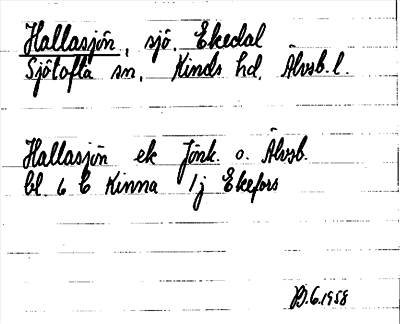 Hallasjön, sjö. Ekedal
Sjötofta sn. Kinds hd. Älvsb. l.
Hallasjön ek Jönk. o. Älvsb.
bl. 6 C Kinna 1j Ekefors
6.1958